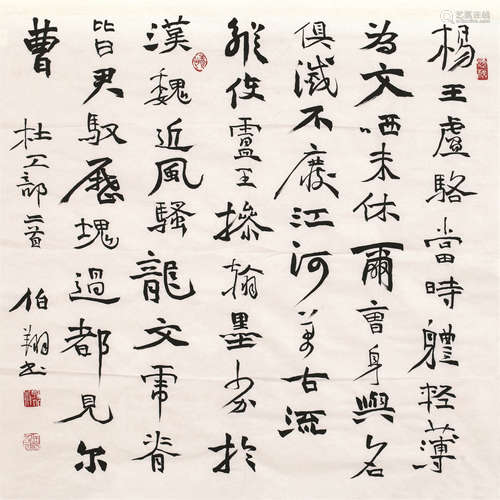 楊王盧駱當時體輕薄
為文哂未休爾曹身與名
俱滅不廢江河萬古流
縱使盧王操翰墨劣於
漢魏近風騷龍文虎脊
皆君馭歷塊過都見尔
曹
杜工部二首
伯翔书